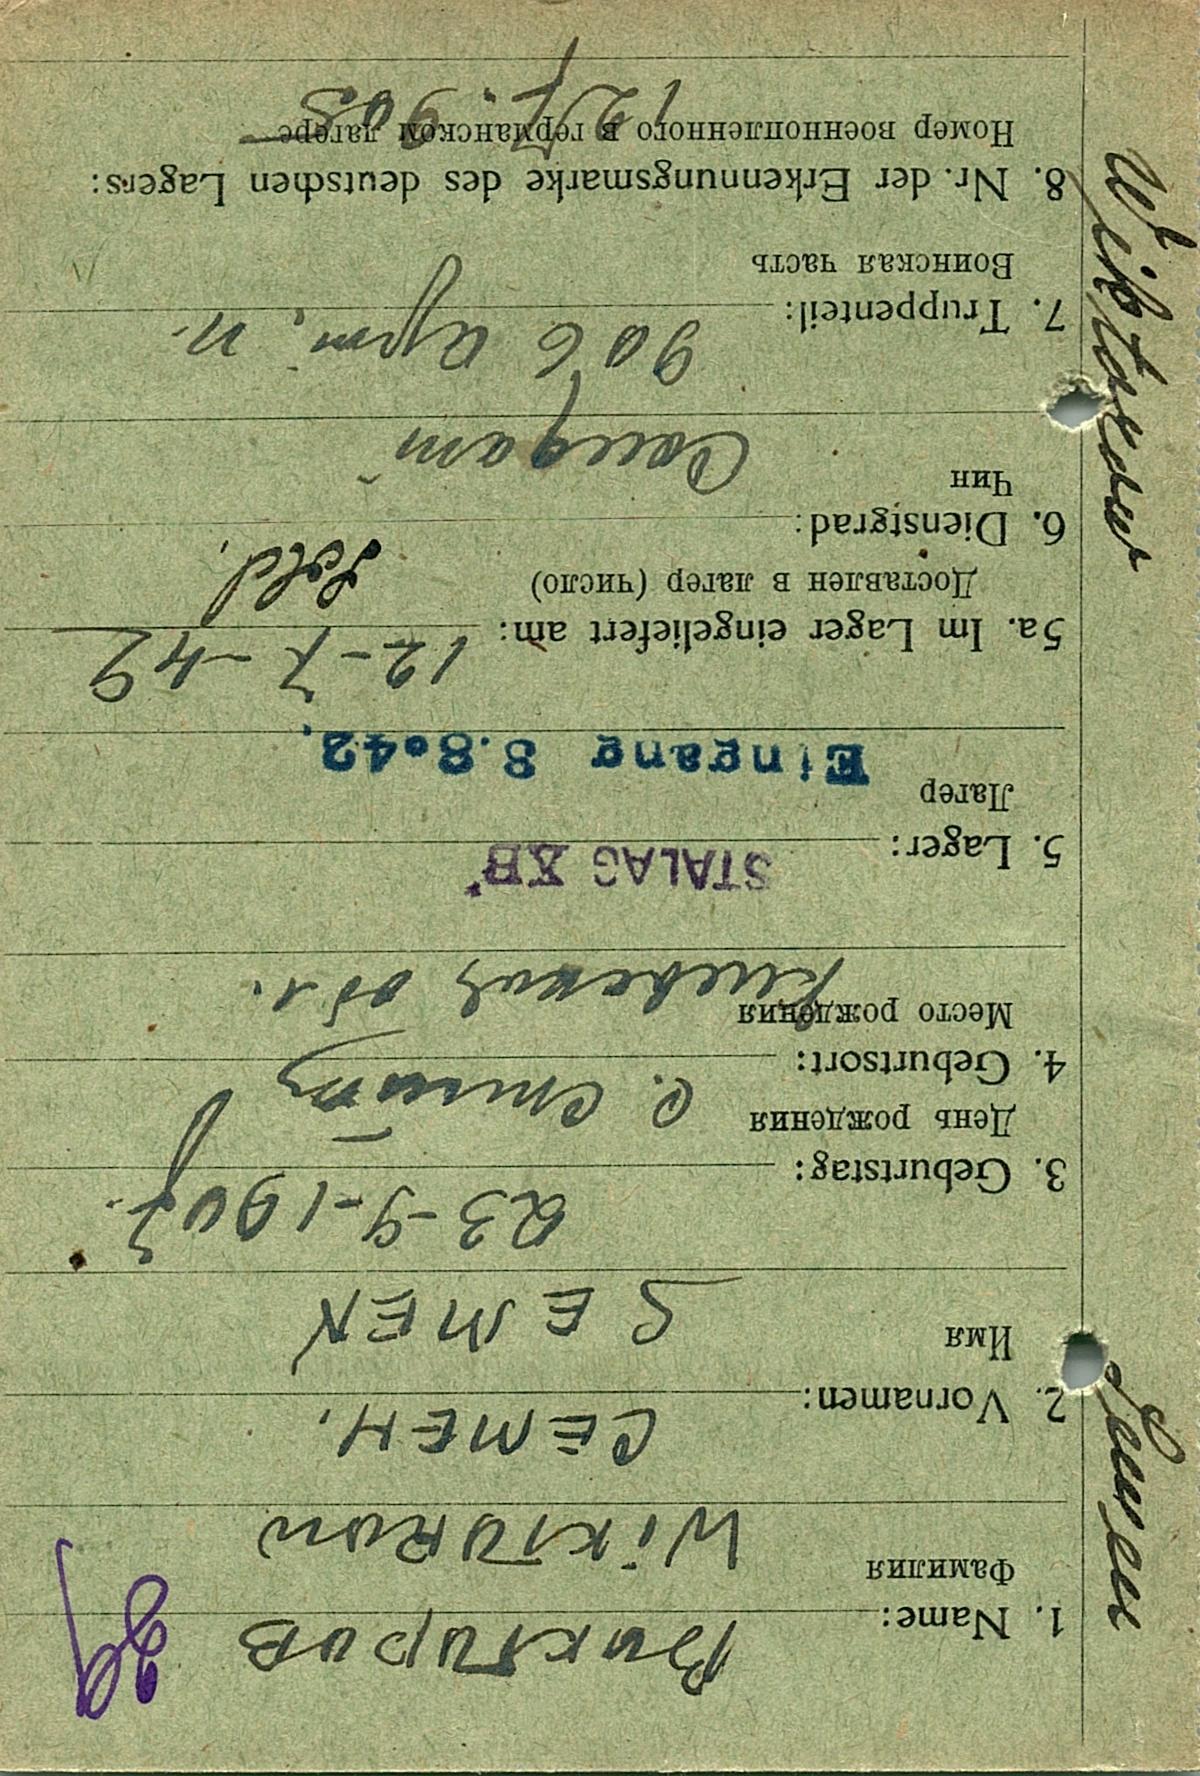 1. Name: Виктиров
Фамилия
WiKTOROW
2. Vornamen: СЕМЕН.
Имя
SEMEN
3. Geburtstag: 23-9-1907.
День рождения
4. Geburtsort: С.
Место рождения
Киевская обл.
5. Lager: STALAG XB
Лагер
Eingang 8.8.42.
5a. Im Lager eingeliefert am: 12-7-42
Доставлен в лагер (число)
Sold.
6. Dienstgrad:
Чин
Солдат
7. Truppenteil: 906 арт. п.
Воинская часть
8. Nr. der Erkennungsmarke des deutschen Lagers:
Номер военнопленного в германском лагере
127.905
Semen Wiktorow